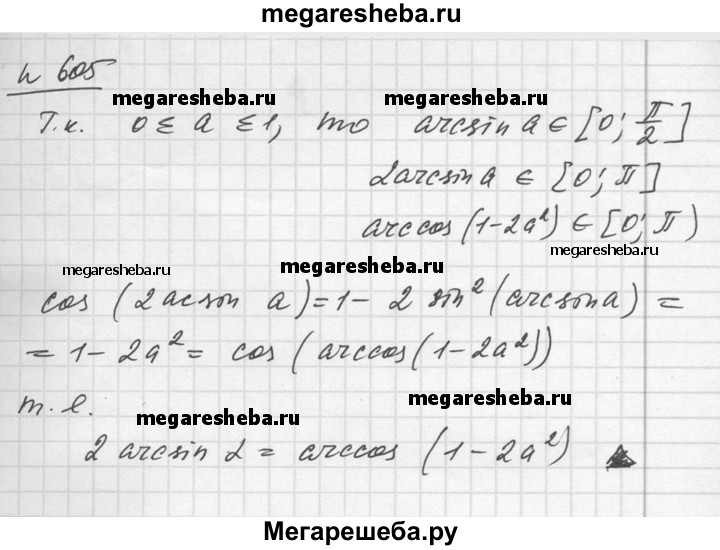 megaresheba.ru
N 605
megaresheba.ru megaresheba.ru
Т.к. 0 ≤ a ≤ 1, то arcsin a ∈ [0; π/2]
2arcsin a ∈ [0; π]
arccos (1-2a²) ∈ [0; π)
megaresheba.ru
megaresheba.ru megaresheba.ru
cos (2 acsin a) = 1 - 2 sin² (arcsina) =
= 1 - 2a² = cos (arccos (1-2a²))
megaresheba.ru
т.е.
megaresheba.ru
2 arcsin α = arccos (1-2a²)
megaresheba.ru
Мегарешеба.ру